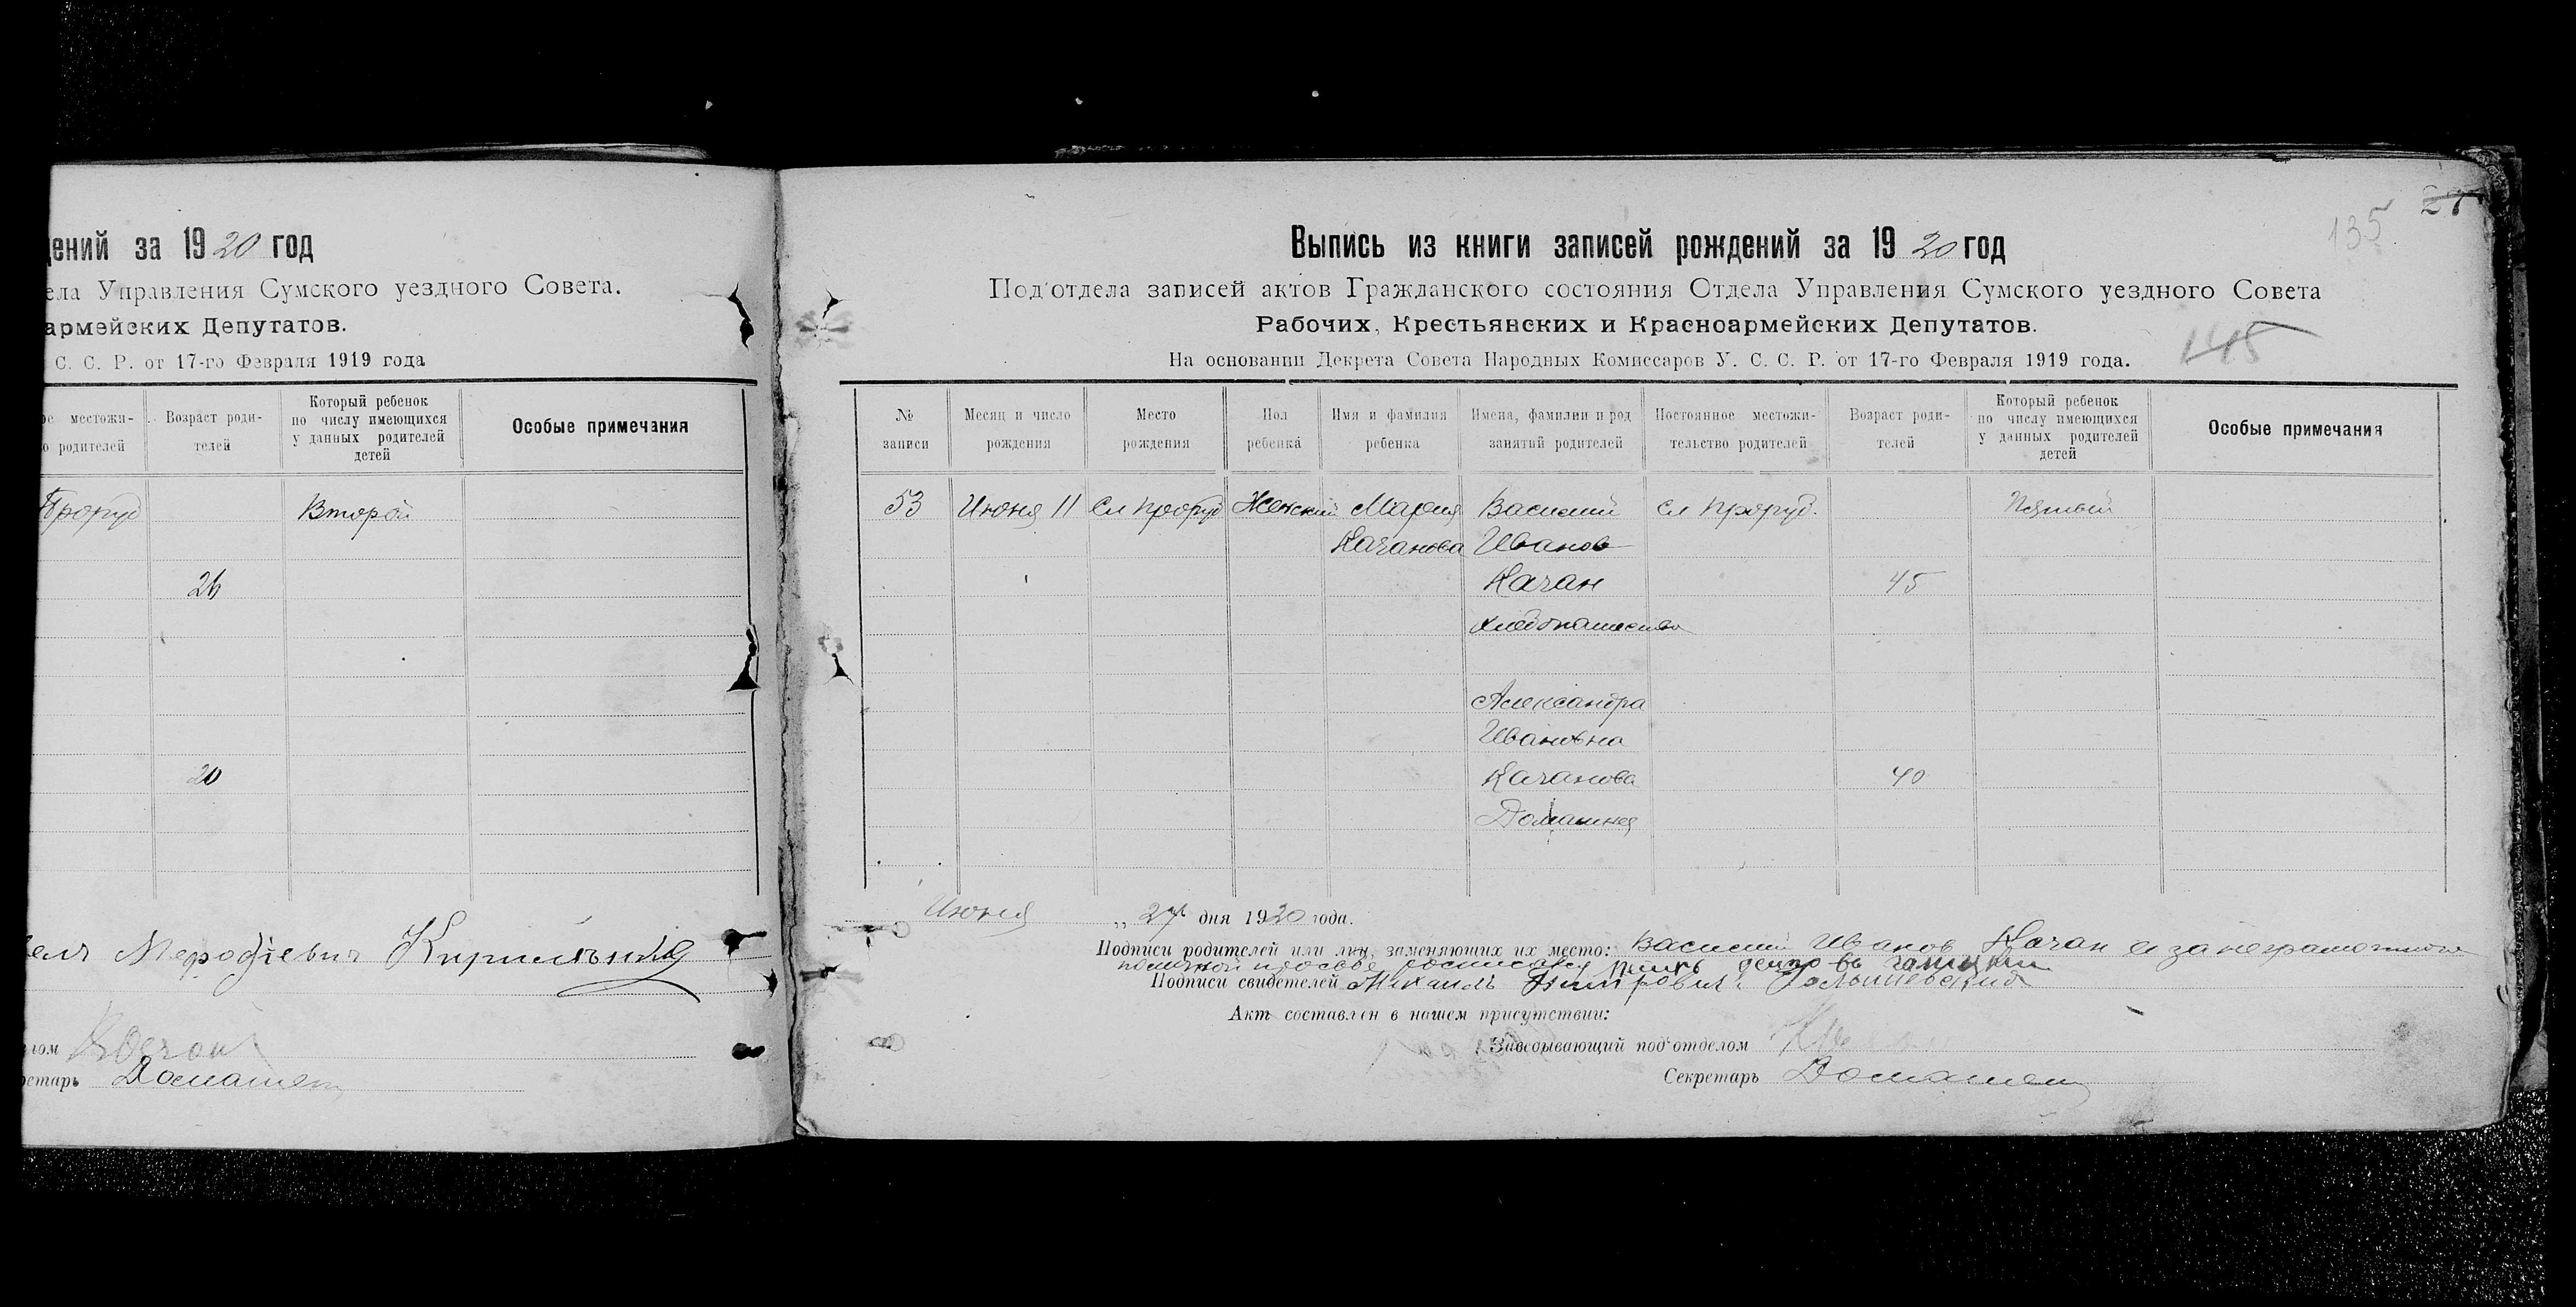 дений за 1920 год
ела Управления Сумского уездного Совета.
армейских Депутатов.
С. С. Р. от 17-го Февраля 1919 года
ое местожи-
о родителей
Возраст роди-
телей
Который ребенок
по числу имеющихся
у данных родителей
детей
Особые примечания
Прoруб
Второй
26
20
Мефодіевич Кирильник
лом
ретарь Домашен
135
27
Выпись из книги записей рождений за 1920 год
Под'отдела записей актов Гражданского состояния Отдела Управления Сумского уездного Совета
Рабочих, Крестьянских и Красноармейских Депутатов.
На основании Декрета Совета Народных Комиссаров У. С. С. Р. от 17-го Февраля 1919 года.
№
записи
Месяц и число
рождения
Место
рождения
Пол
ребенка
Имя и фамилия
ребенка
Имена, фамилии и род
занятий родителей
Постоянное местожи-
тельство родителей
Возраст роди-
телей
Который ребенок
по числу имеющихся
у данных родителей
детей
Особые примечания
53 Июня 11 Сл Проруб Женский Мария Василий Сл Проруб. Пятый
Качанова Иванов
Качан 45
хлебопашество
Александра
Ивановна
Качанова 40
Домашняя
Июня „ 27 дня 1920 года.
Подписи родителей или лиц, заменяющих их место: Василий Иванов Качан а за неграмотного
по личной просьбе росписался
Подписи свидетелей Михаилъ
Актъ составлен в нашем присутствии:
Заведывающий под'отделом
Секретарь Домашен